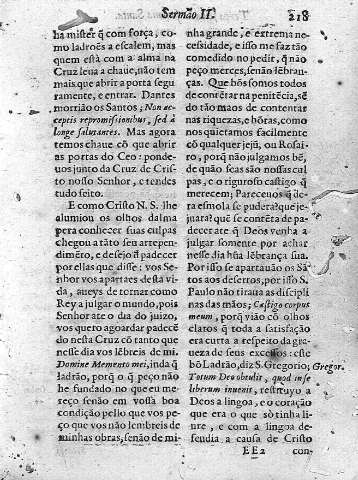 Sermão II.
218
ha mister q̃ com força, co-
mo ladroẽs a escalem, mas
quem està com a alma na
Cruz leua a chaue, não tem
mais que abrir a porta segu
ramente, e entrar. Dantes
morrião os Santos; Non ac-
ceptis repromissionibus, sed à
longe salutantes. Mas agora
temos chaue cõ que abrir
as portas do Ceo: ponde-
uos junto da Cruz de Cris-
to nosso Senhor, e tendes
tudo feito.
E como Cristo N. S. lhe
alumiou os olhos dalma
pera conhecer suas culpas
chegou a tãto seu arrepen-
dimẽto, e desejo d̃ padecer
por ellas que disse: vos Se-
nhor vos apartaes desta vi-
da, aueys de tornar como
Rey a julgar o mundo, pois
Senhor ate o dia do juizo,
vos quero agoardar padecẽ
do nesta Cruz cõ tanto que
nesse dia vos lẽbreis de mi.
Domine Memento mei, inda q̃
ladrão, para o q̃ peço não
he fundado no que eu me-
reço senão em vossa boa
condição pello que vos pe-
ço que vos não lembreis de
minhas obras, senão de mi-
nha grande, e extrema ne-
cessidade, e isso me faz tão
comedido no pedir, q̃ não
peço merces, senão lẽbran-
ças. Que bõs somos todos
de concẽtrar na penitẽcia, sẽ-
do tão maos de contentar
nas riquezas, e hõras, como
nos quietamos facilmente
cõ qualquer jejũ, ou Rosai-
ro, porq̃ não julgamos bẽ,
de quão feas são nossas cul
pas, e o riguroso castigo q̃
merecem; Pareceuos q̃ de-
ra esmola se pudera? que je-
juara? que se contẽta de pa-
decer ate q̃ Deos venha a
julgar somente por achar
nesse dia hũa lẽbrança sua.
Por isso se apartauão os Sã-
tos aos desertos, por isso S.
Paulo não tiraua as discipli
nas das mãos; Castigo corpus
meum, porq̃ vião cõ olhos
claros q̃ toda a satisfação
era curta a respeito da gra-
ueza de seus excessos: este
bõ Ladrão, diz S. Gregorio;
Gregor.
Totum Deo obtulit, quod in se
liberum inuenit, restituyo a
Deos a lingoa, e o coração
que era o que só tinha li-
ure, e com a lingoa de-
fendia a causa de Cristo
EE2
con-